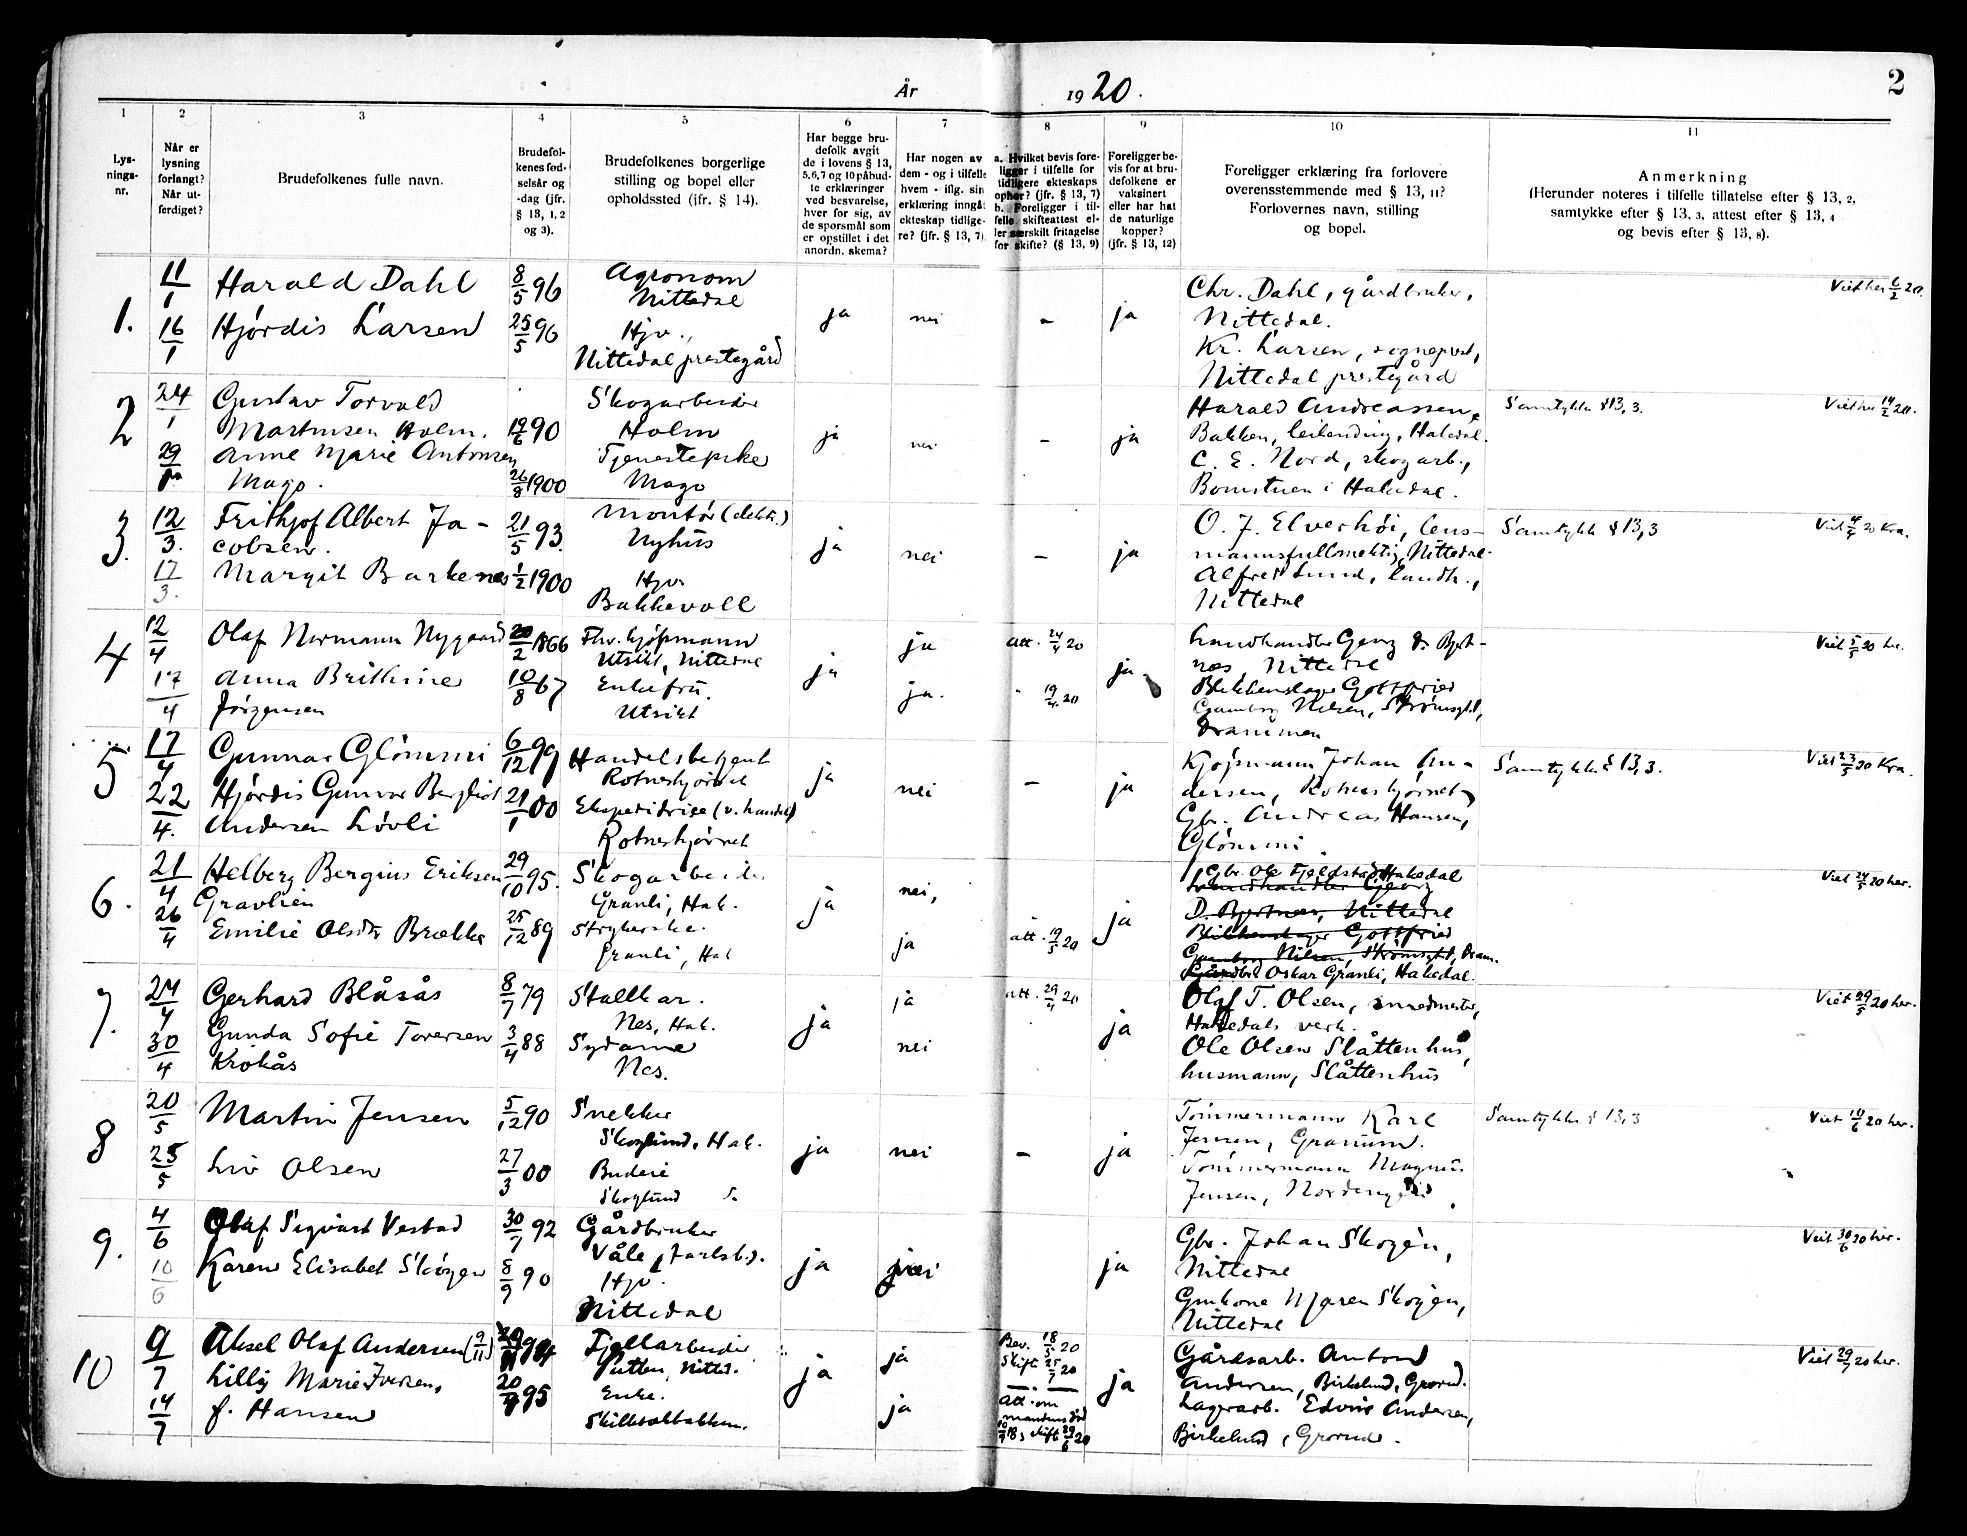 2
År 1920.
1
2
3
4
5
6
7
8
9
10
11
Lys-
nings-
nr.
Når er
lysning
forlangt?
Når ut-
ferdiget?
Brudefolkenes fulle navn.
Brudefol-
kenes fød-
selsår og
-dag (jfr.
§ 13, 1, 2
og 3).
Brudefolkenes borgerlige
stilling og bopel eller
opholdssted (jfr. § 14).
Har begge bru-
defolk avgit
de i lovens § 13,
5,6,7 og 10 påbud-
te erklæringer
ved besvarelse,
hver for sig, av
de spørsmål som
er opstillet i det
anordn. skema?
Har nogen av
dem - og i tilfelle
hvem - iflg. sin
erklæring inngåt
ekteskap tidlige-
re? (jfr. § 13, 7)
a. Hvilket bevis fore-
ligger i tilfelle for
tidligere ekteskaps
ophør? (jfr. § 13, 7)
b. Foreligger i til-
felle skifteattest el-
ler særskilt fritagelse
for skifte? (§ 13, 9)
Foreligger be-
vis for at bru-
defolkene er
vaksinert
eller har hat
de naturlige
kopper?
(jfr. § 13, 12)
Foreligger erklæring fra forlovere
overensstemmende med § 13, 11?
Forlovernes navn, stilling
og bopel.
Anmerkning
(Herunder noteres i tilfelle tillatelse efter § 13, 2,
samtykke efter § 13, 3, attest efter § 13, 4
og bevis efter § 13, 8).
1.
11/1
16/1
Harald Dahl
Hjørdis Larsen
8/5 96
25/5 96
Agronom
Nittedal
Hjv.,
Nittedal prestegård
ja
nei
-
ja
Chr. Dahl, gårdbruker,
Nittedal.
Kr. Larsen, sogneprest,
Nittedal prestegård
Viet her 6/2 20.
2
24/1
29/
Gustav Torvald
Martinsen Holm.
Anne Marie Antonsen
Mago.
19/6 90
26/8 1900
Skogarbeider
Holm
Tjenestepike
Mago
ja
nei
-
ja
Harald Andreassen,
Bakken, leilending, Hakedal.
C. E. Nord, skogarb.,
Bomstuen i Hakedal.
Samtykke § 13, 3.
Viet her 14/2 20.
3.
12/3.
17/3.
Frithjof Albert Ja-
cobsen.
Margit Barkenes
21/5 93.
1/2 1900
Montør (elektr.)
Nyhus
Hjv.
Bakkevoll
ja
nei
-
ja
O. J. Elverhöi, lens-
mannsfullmektig, Nittedal.
Alfred Lund, landh.,
Nittedal
Samtykke § 13, 3
Viet 4/4 20 Kra.
4
12/4
17/4
Olaf Normann Nygaard
Anna Brithine
Jörgensen
20/2 1866
10/8 67
Fhv. kjøpmann
Utsikt, Nittedal
Enkefru.
Utsikt
ja
ja
ja.
att. 24/4 20
" 19/4. 20
ja.
Landhandler Georg D. Bjert-
næs, Nittedal
Blikkenslager Gottfried
Gamborg Nilsen, Strömsgt.,
Drammen
Viet 5/5 20 her.
5
17/4
22/4.
Gunnar Glömmi
Hjørdis Gunvor Bergliot
Andersen Lövli
6/12 99
21/1 00
Handelsbetjent
Rotneshjørnet
Ekspeditrise (v. handel)
Rotneshjørnet
ja
nei
-
ja
Kjøpmann Johan An-
dersen, Rotneshjørnet
Gbr. Andreas Hansen,
Glömmi.
Samtykke § 13, 3.
Viet 23/5 20 Kra.
6.
21/4
26/4
Helberg Bergius Eriksen
Gravlien
Emilie Olsdtr Brække
29/10 95.
25/12 89
Skogarbeider
Granli, Hak.
Strykerske.
Granli, Hak
ja
nei,
ja
att. 19/5 20
ja
Gbr. Ole Fjeldstad, Hakedal
Landhandler Georg
D. Bjertnæs, Nittedal
Blikkenslager Gottfried
Gamborg Nilsen, Strömsgt, Dram.
Gårdbr. Oskar Granli, Hakedal.
Viet 24/5 20 her.
7.
24/4
30/4
Gerhard Blåsås
Gunda Sofie Toversen
Krokås
8/7 79
3/4 88
Stallkar.
Nes, Hak.
Sydame
Nes.
ja
ja
nei
att. 29/4 20
ja
Olaf T. Olsen, smedmester,
Hakedals verk.
Ole Olsen Slåttenhus,
husmann, Slåttenhus
Viet 29/5 20 her.
8
20/5
25/5
Martin Jensen
Liv Olsen
5/12 90
27/3 00
Snekker
Skoglund, Hak.
Budeie
Skoglund
ja
nei
-
ja
Tömmermann Karl
Jensen, Granum.
Tömmermann Magnus
Jensen,
Samtykke § 13, 3
Viet 10/6 20 her.
9.
4/6
10/6
Olaf Sigvart Vestad
Karen Elisabet Skögen
30/7 92
8/9 90
Gårdbruker
Våle, Jarlsb.).
Hjv.
Nittedal
ja
nei
ja
Gbr. Johan Skogen,
Nittedal
Gmkone Maren Skogen,
Nittedal
Viet 30/6 20 her.
10
9/7
14/7
Aksel Olaf Andersen (9/11)
Lilly Marie Iversen,
f. Hansen
20/ 95
Fjellarbeider
Putten, Nitted.
Enke.
Skillebekbakken.
ja
ja
ja
Bev. 18/5 20
Skift. 25/7 20
att. om
mannens död
10/7 18, skift. 29/6 20
ja
Gårdsarb. Anton
Andersen, Birkelund, Grorud.
Lagerarb. Edvin Andersen,
Birkelund, Grorud.
Viet 29/7 20 her.